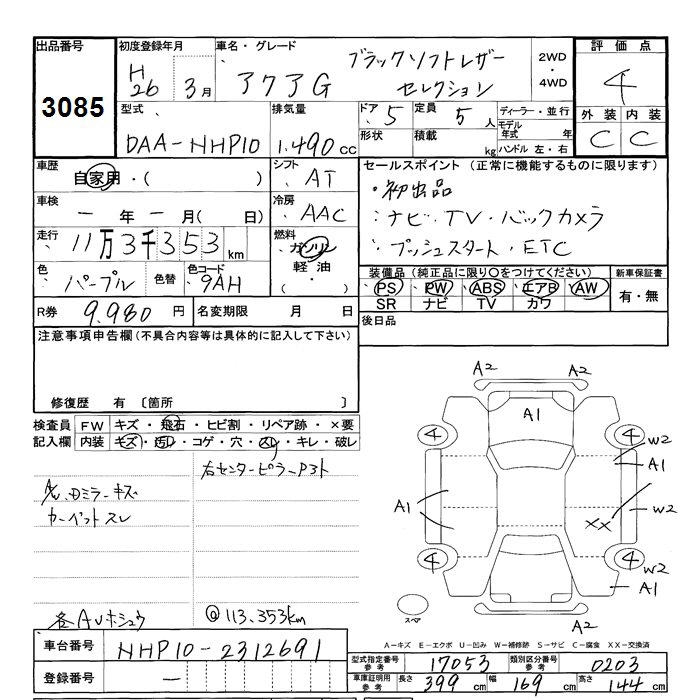 出品番号 初度登録年月 車名・グレード 評価点
3085 H26 3月 アクアG ブラックソフトレザーセレクション 2WD・4WD 4
型式 排気量 ドア 5 定員 5人 ディーラー・並行 外装 内装
DAA-NHP10 1.490cc 形状 積載 kg モデル年式 年 ハンドル 左・右 C C
車歴 自家用・( ) シフト AT セールスポイント (正常に機能するものに限ります)
・初出品
車検 ー年ー月( 日) 冷房 AAC ・ナビ・TV・バックカメラ
走行 11万3千353km 燃料 ガソリン 軽油・( ) ・プッシュスタート・ETC
色 パープル 色替 色コード 9AH 装備品(純正品に限り○をつけてください) 新車保証書
PS PW ABS エアB AW 有・無
SR ナビ TV カワ
R券 9.980円 名変期限 月 日 後日品
注意事項申告欄(不具合内容等は具体的に記入して下さい)
修復歴 有 〔箇所 〕
検査員 FW キズ・飛石・ヒビ割・リペア跡・×要
記入欄 内装 キズ・汚レ・コゲ・穴・スレ・キレ・破レ
右センターピラーP3ト
A/W.Dミラーキズ
カーペットスレ
各AWホシュウ @113.353km
A2 A2
A1
4 4 W2
A1
A1 W2
XX
4 4 W2
A1
スペア A2
A2
A-キズ E-エクボ U-凹み W-補修跡 S-サビ C-腐食 XX-交換済
車台番号 NHP10-2312691
登録番号 ー
型式指定番号 参考 17053 類別区分番号 参考 0203
車庫証明用 参考 長さ 399(cm) 幅 169(cm) 高さ 144(cm)